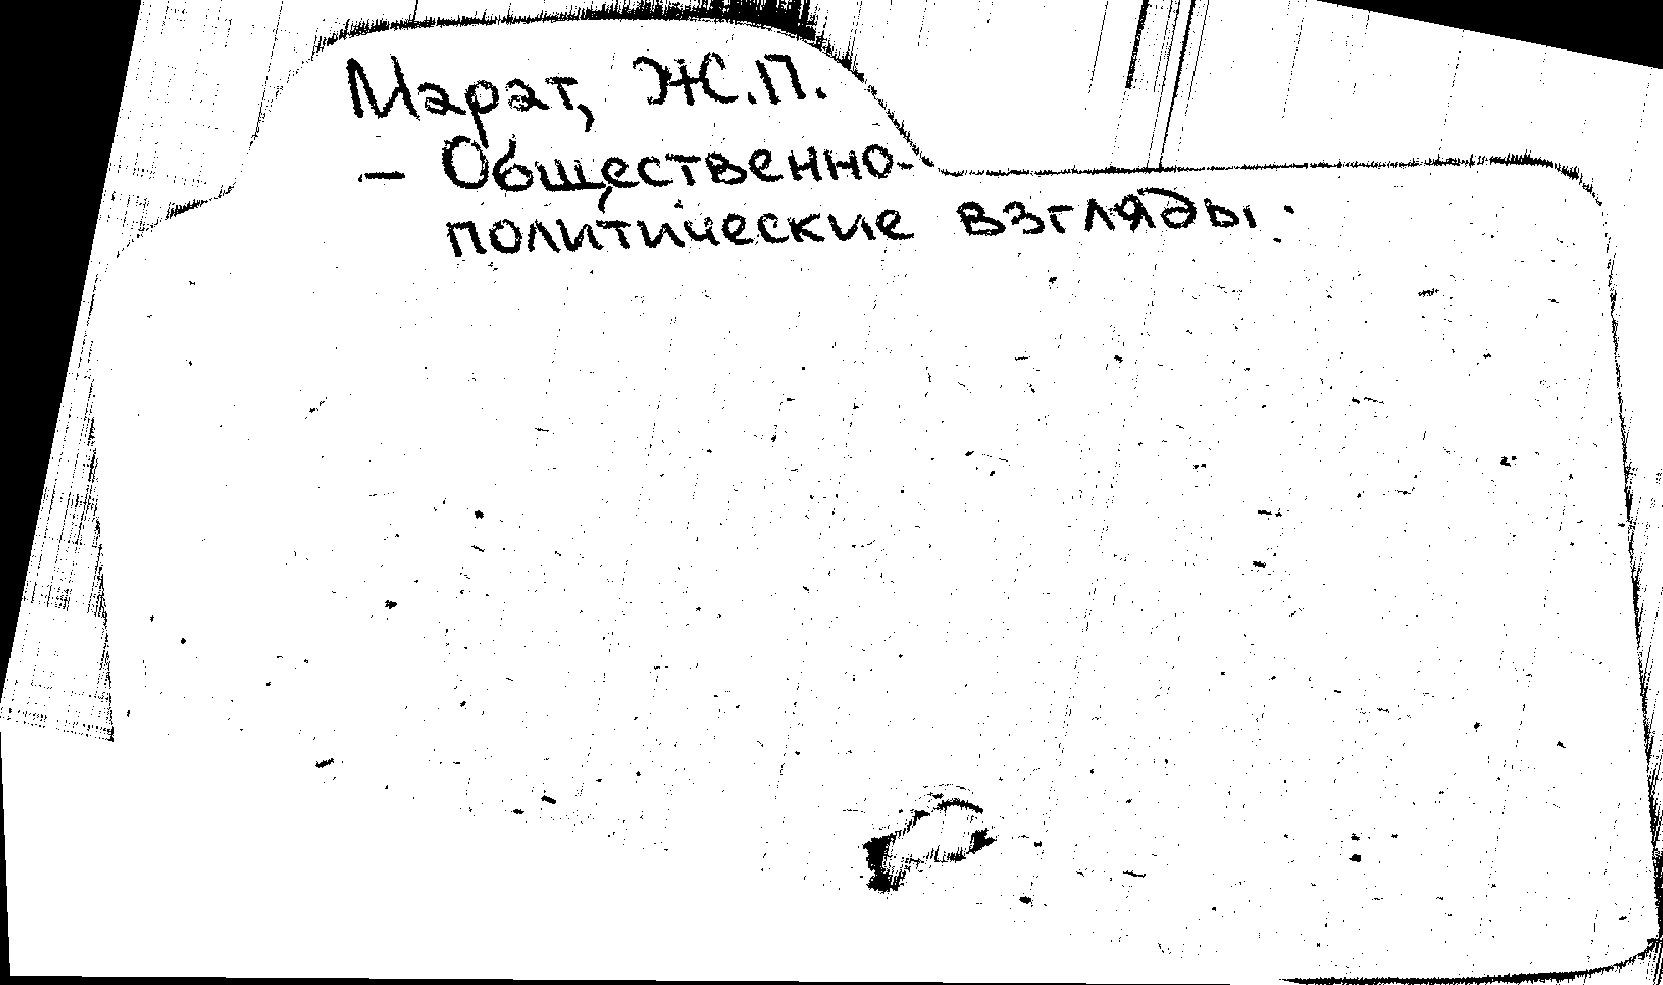 Марат, Ж.П.
– Общественно-
политические взгляды.